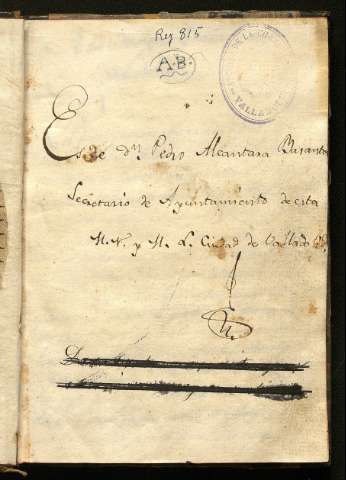 Reg 815
A.B.
DE LA
VALLAD
Es de dn. Pedro Alcantara Basanta
Secretario de Ayuntamiento de esta
M. N. y M. L. Ciudad de Vallado